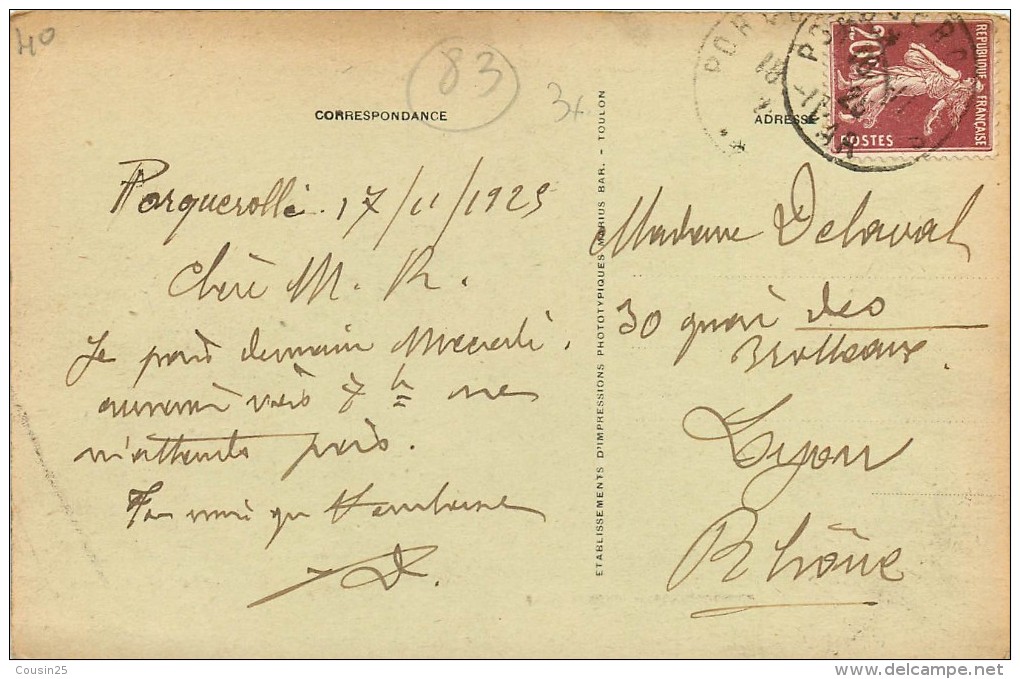 40
83
3+
CORRESPONDANCE
ADRESSE
REPUBLIQUE FRANÇAISE
20
POSTES
Porquerolle. 17/11/1925
Chère M. R.
Je pars demain Mercredi.
vers 7 h ne
m'attends pas.
D.
ETABLISSEMENTS D'IMPRESSIONS PHOTOTYPIQUES MARIUS BAR. - TOULON
Madame Delaval
30 quai des
Brotteaux.
Lyon
Rhône
Cousin25
www.delcampe.net